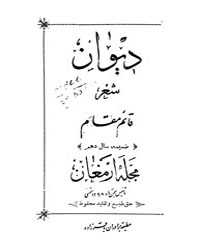 دیوان
شعر
قائم مقام
ضمیمه سال دهم
مجله ارمغان
حق طبع و تقلید محفوظ
مطبعه برادران باقرزاده